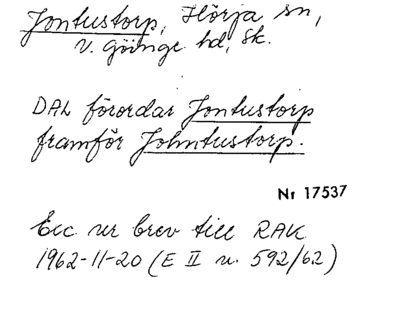 Jontustorp, Hörja sn,
V. Göinge hd, Sk.
DAL förordar Jontustorp
framför Johntustorp.
Nr 17537
Exc ur brev till RAK
1962-11-20 (E II u. 592/62)